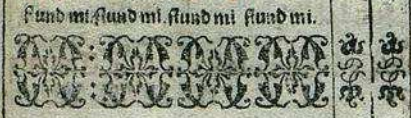 ſtund mi. ſtund mi. ſtund mi ſtund mi.